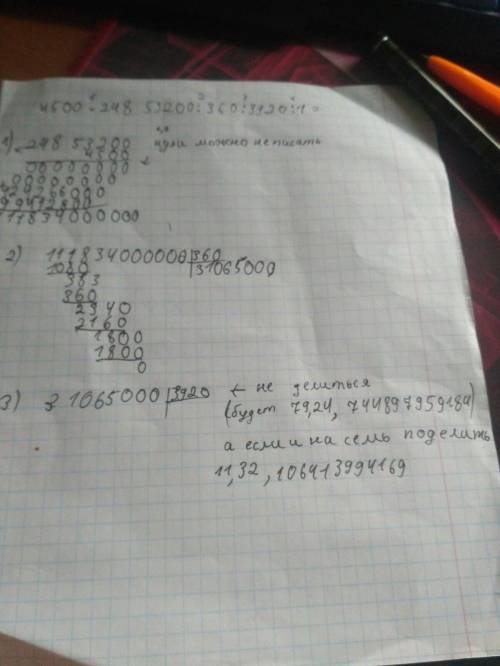 4500 · 248 53200 : 360 : 3920 : 1 =
1) 248 53200 нули можно не писать
4500
00000000
00000000
111834000000
2) 111834000000 360
1080 31065000
383
360
2340
2160
1800
1800
0
3) 31065000 3920 ← не делиться
(будет 79,24, 744897959184)
а если и на семь поделить
11,32, 106413994169